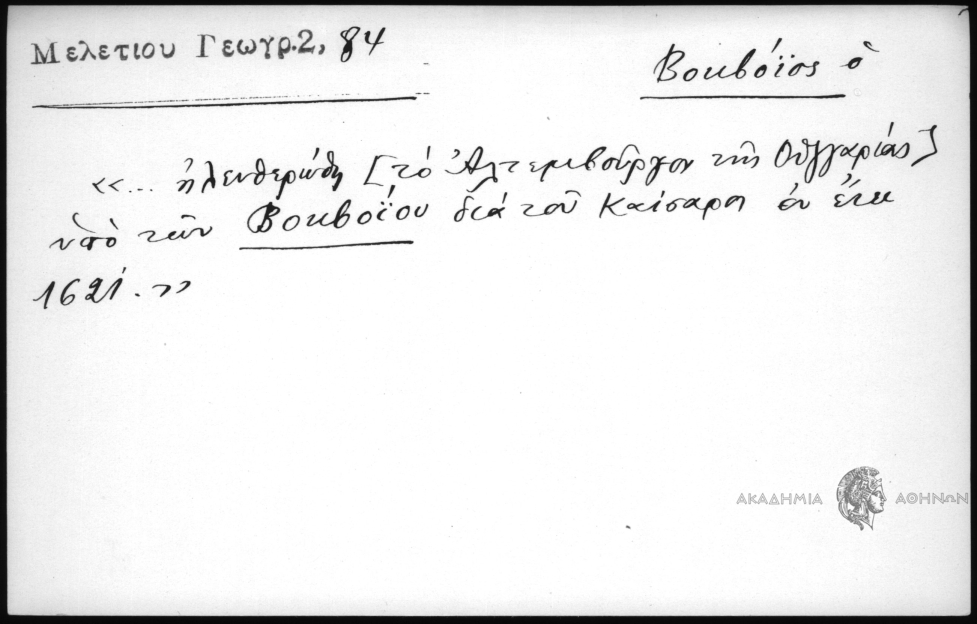 Μελετιου Γεωγρ.2, 84
Βουβόϊος ὁ
«... ἠλευθερώθη [τὸ Ἀλτεμβοῦργον τῆς Οὑγγαρίας]
ὑπὸ τῶν Βουβοΐου διά τοῦ Καίσαρος ἐν ἔτει
1621. »
ΑΚΑΔΗΜΙΑ ΑΘΗΝΩΝ